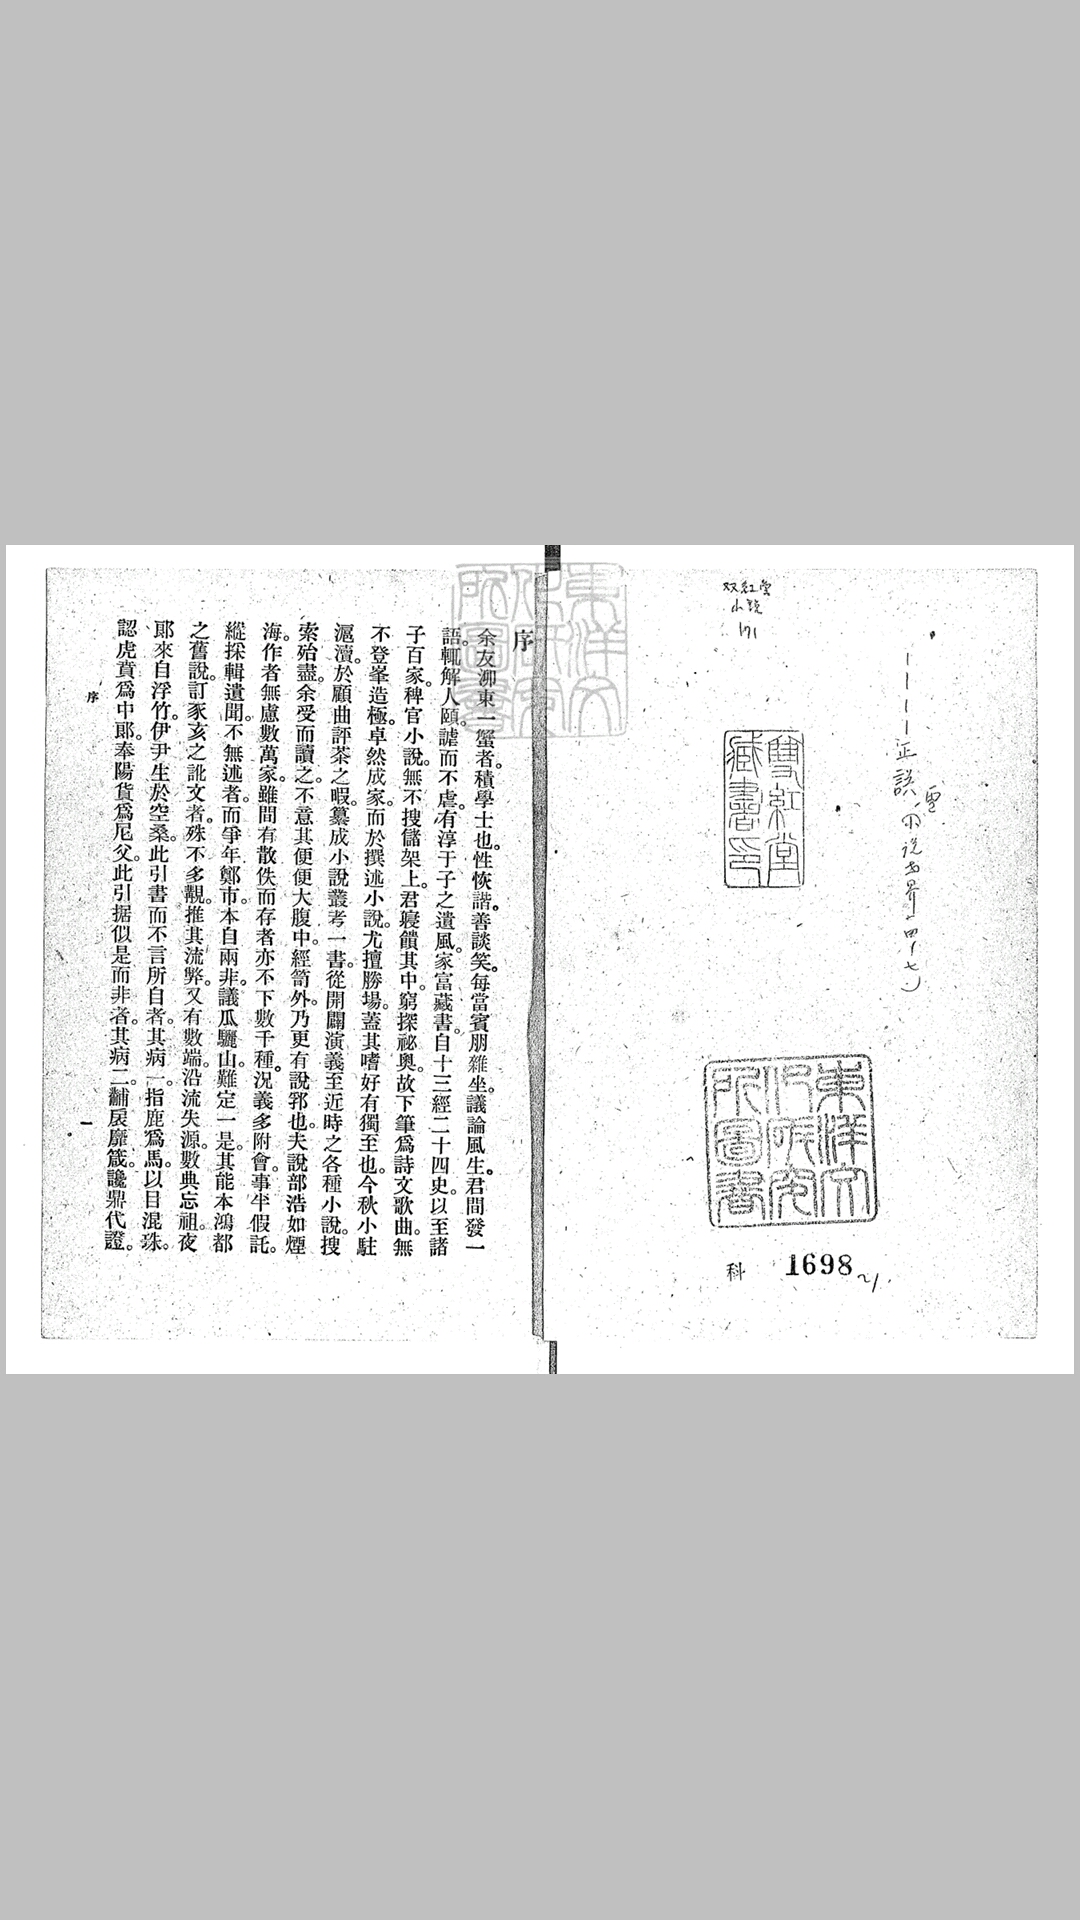 双紅堂
小説
171
正誤
雙紅堂
藏書印
東洋文
化研究
所圖書
科 1698
序
余友泖東一蟹者。積學士也。性恢諧。善談笑。每當賓朋雜坐。議論風生。君間發一
語。輒解人頤。謔而不虐。有淳于子之遺風。家富藏書。自十三經二十四史。以至諸
子百家。稗官小說。無不搜儲架上。君寢饋其中。窮探祕奧。故下筆爲詩文歌曲。無
不登峯造極。卓然成家。而於撰述小說。尤擅勝場。蓋其嗜好有獨至也。今秋小駐
滬瀆。於顧曲評茶之暇。纂成小說叢考一書。從開闢演義至近時之各種小說。搜
索殆盡。余受而讀之。不意其便便大腹中。經笥外。乃更有說郛也。夫說部浩如煙
海。作者無慮數萬家。雖間有散佚而存者亦不下數千種。况義多附會。事半假託。
縱採輯遺聞。不無述者。而爭年鄭市。本自兩非。議瓜驪山。難定一是。其能本鴻都
之舊說。訂豕亥之訛文者。殊不多覯。推其流弊。又有數端。沿流失源。數典忘祖。夜
郞來自浮竹。伊尹生於空桑。此引書而不言所自者。其病一。指鹿爲馬。以目混珠。
認虎賁爲中郞。奉陽貨爲尼父。此引据似是而非者。其病二。黼扆靡箴。讒鼎代證。
序
一